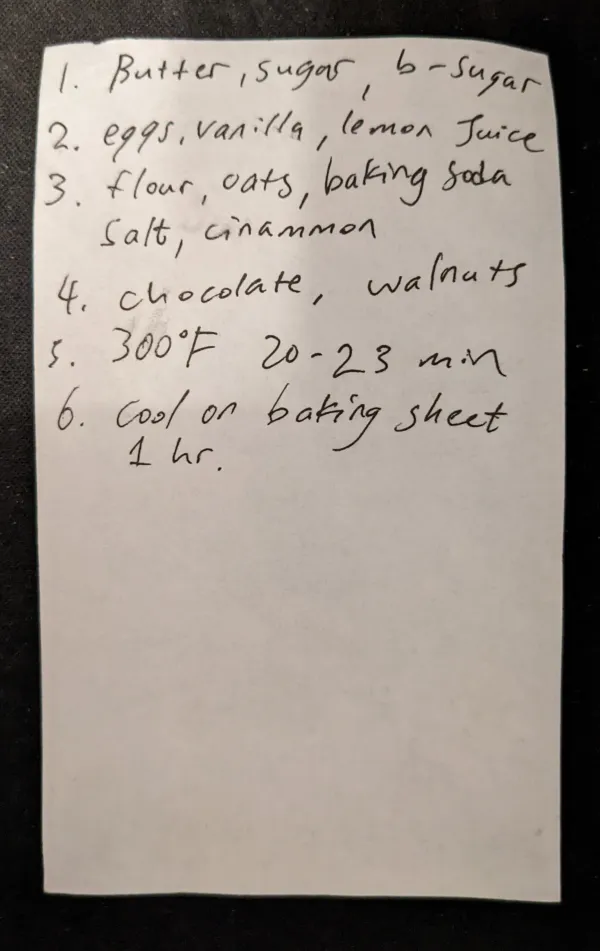 1. Butter, sugar, b-sugar
2. eggs, vanilla, lemon Juice
3. flour, oats, baking soda
salt, cinammon
4. chocolate, walnuts
5. 300°F 20-23 min
6. Cool on baking sheet
1 hr.